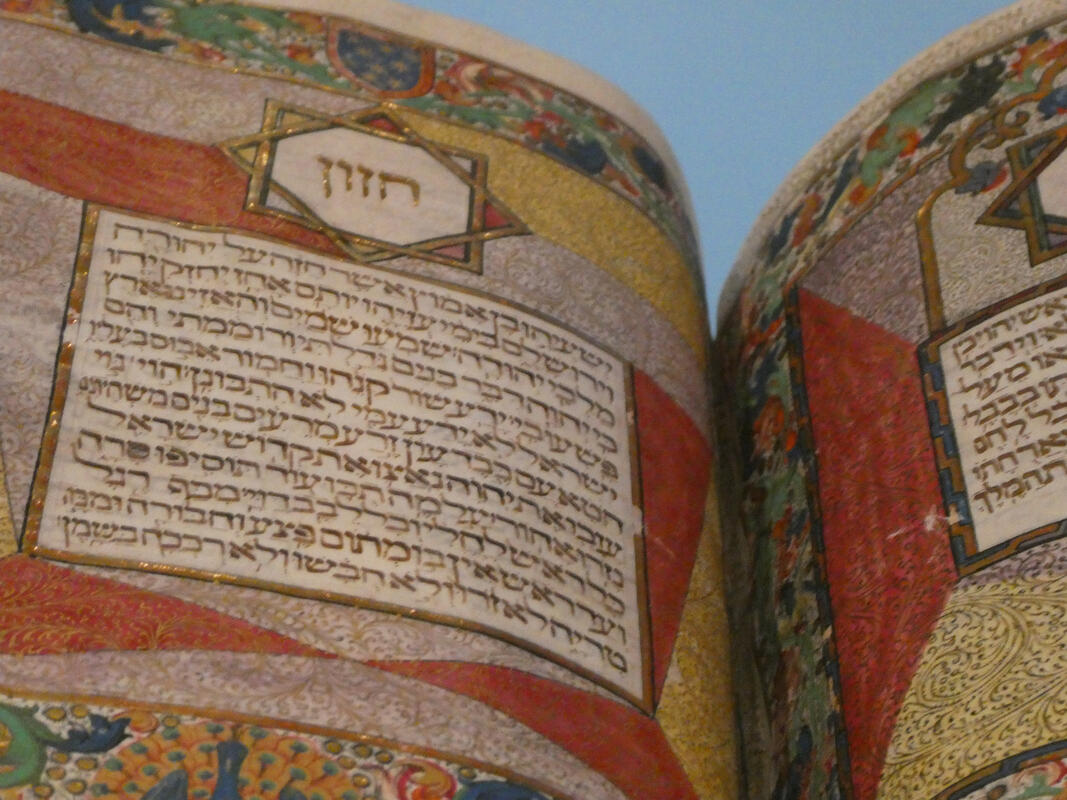 חזון
ישעיהו בן אמוץ אשר חזה על יהודה
וירושלם בימי עזיהו יותם אחז יחזקיהו
מלכי יהודה שמעו שמים והאזיני ארץ
כי יהוה דבר בנים גדלתי ורוממתי והם
פשעו בי ידע שור קנהו וחמור אבוס בעליו
ישראל לא ידע עמי לא התבונן הוי גוי
חטא עם כבד עון זרע מרעים בנים משחיתים
עזבו את יהוה נאצו את קדוש ישראל
נזרו אחור על מה תכו עוד תוסיפו סרה
כל ראש לחלי וכל לבב דוי מכף רגל
ועד ראש אין בו מתום פצע וחבורה ומכה
טריה לא זרו ולא חבשו ולא רככה בשמן
יהויכן
וידבר
מעל
בבבל
לחם
וארחתו